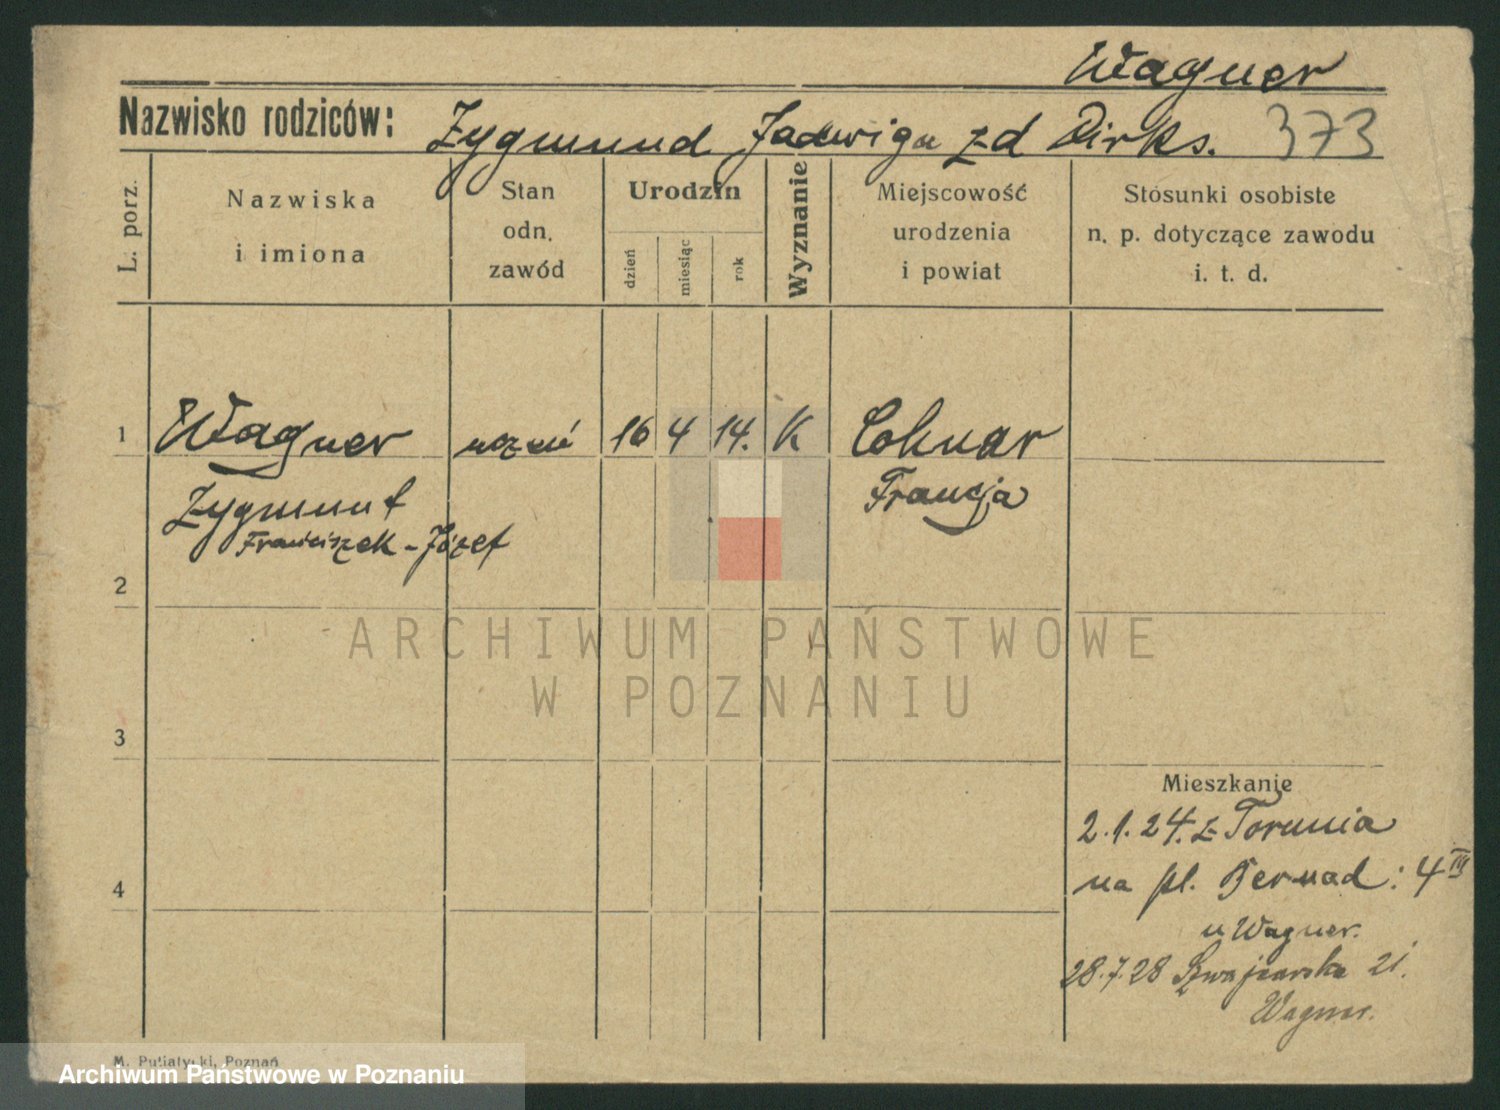 Wagner
Nazwisko rodziców: Zygmund Jadwiga zd Dirks. 373
L. porz.
Nazwiska
i imiona
Stan
odn.
zawód
Urodzin
dzień
miesiąc
rok
Wyznanie
Miejscowość
urodzenia
i powiat
Stosunki osobiste
n. p. dotyczące zawodu
i. t. d.
1 Wagner uczeń 16 4 14. K Colmar
Zygmunt Francja
Franciszek-Józef
2
ARCHIWUM PAŃSTWOWE
W POZNANIU
3
Mieszkanie
2.1.24. z Torunia
4
na pl. Bernad: 4 IV
u Wagner.
28.7.28 Szwajcarska 21.
Wagner.
M. Putiatycki, Poznań
Archiwum Państwowe w Poznaniu